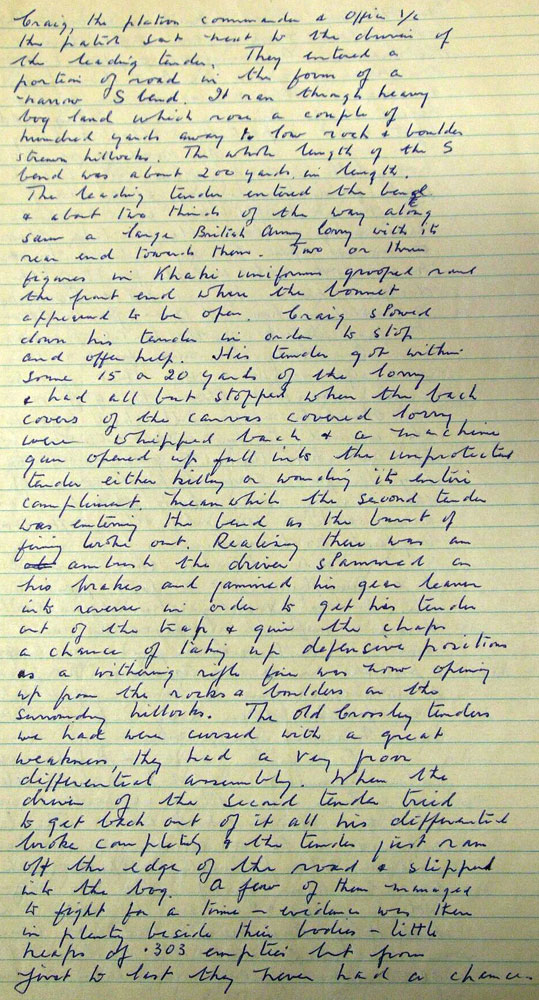 Craig, the platoon commander & Officer i/c
the patrol sat next to the driver of
the leading tender. They entered a
portion of road in the form of a
narrow S bend. It ran through heavy
bog land which rose a couple of
hundred yards away to low rock & boulder
strewn hillocks. The whole length of the S
bend was about 200 yards in length.
The leading tender entered the bend
& about two thirds of the way along
saw a large British Army lorry with its
rear end towards them. Two or three
figures in Khaki uniforms grouped round
the front end where the bonnet
appeared to be open. Craig slowed
down his tender in order to stop
and offer help. His tender got within
some 15 or 20 yards of the lorry
& had all but stopped when the back
covers of the canvas covered lorry
were whipped back & a machine
gun opened up full into the unprotected
tender either killing or wounding its entire
compliment. Meanwhile the second tender
was entering the bend as the burst of
firing broke out. Realising there was an
ambush the driver slammed on
his brakes and jammed his gear leaver
into reverse in order to get his tender
out of the trap & give the chaps
a chance of taking up defensive positions
as a withering rifle fire was now opening
up from the rocks & boulders on the
surrounding hillocks. The old Crossley tenders
we had were cursed with a great
weakness, they had a very poor
differential assembly. When the
driver of the second tender tried
to get back out of it all his differential
broke completely & the tender just ran
off the edge of the road & slipped
into the bog. A few of them managed
to fight for a time - evidence was there
in plenty beside their bodies - little
heaps of .303 empties but from
first to last they never had a chance.